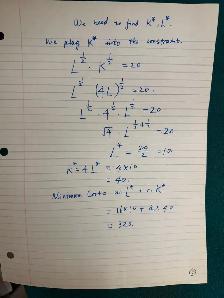 We need to find K* L*.
We plug K* into the constraint.
L^{1/2} · K^{1/2} = 20
L^{1/2} (4L)^{1/2} = 20.
L^{1/2} · 4^{1/2} · L^{1/2} = 20
√4 · L^{1/2+1/2} = 20
L* = 20/2 = 10
K* = 4L* = 4×10
= 40.
Minimum Costs = L* + r K*
= 40
= 320.